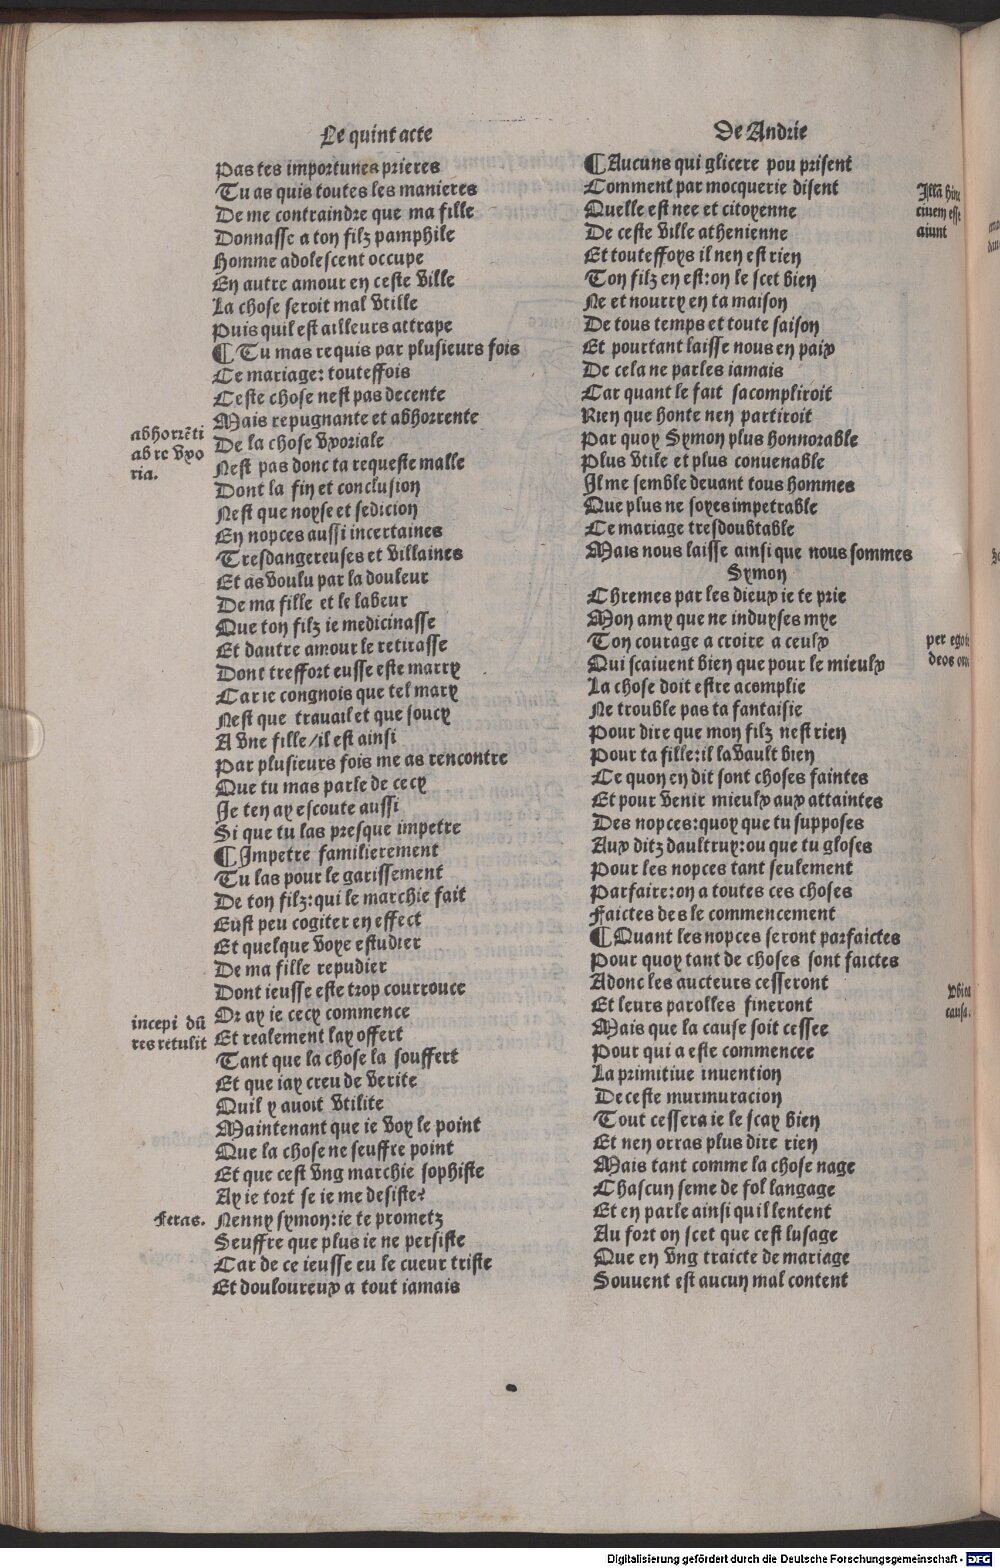 Le quint acte
Pas tes importunes prieres
Tu as quis toutes les manieres
De me contraindre que ma fille
Donnasse a ton filz pamphile
Homme adolescent occupe
En autre amour en ceste ville
La chose seroit mal vtille
Puis quil est ailleurs attrape
¶ Tu mas requis par plusieurs fois
Ce mariage: touteffois
Ceste chose nest pas decente
Mais repugnante et abhorrente
abhorrẽti
ab re vxo
ria.
De la chose vxoriale
Nest pas donc ta requeste malle
Dont la fin et conclusion
Nest que noyse et sedicion
En nopces aussi incertaines
Tresdangereuses et villaines
Et as voulu par la douleur
De ma fille et le labeur
Que ton filz ie medicinasse
Et dautre amour le retirasse
Dont treffort eusse este marry
Car ie congnois que tel mary
Nest que trauail et que soucy
A vne fille/il est ainsi
Par plusieurs fois me as rencontre
Que tu mas parle de cecy
Je ten ay escoute aussi
Si que tu las presque impetre
¶ Impetre familierement
Tu las pour le garissement
De ton filz: qui le marchie fait
Eust peu cogiter en effect
Et quelque voye estudier
De ma fille repudier
Dont ieusse este trop courrouce
Or ay ie cecy commence
incepi dũ
res retulit
Et realement lay offert
Tant que la chose la souffert
Et que iay creu de verite
Quil y auoit vtilite
Maintenant que ie voy le point
Que la chose ne seuffre point
Et que cest vng marchie sophiste
Ay ie tort se ie me desiste?
feras.
Nenny symon: ie te prometz
Seuffre que plus ie ne persiste
Car de ce ieusse eu le cueur triste
Et douloureux a tout iamais
De Andrie
¶ Aucuns qui glicere pou prisent
Comment par mocquerie disent
Illã hinc
ciuem esse
aiunt
Quelle est nee et citoyenne
De ceste ville athenienne
Et touteffoys il nen est rien
Ton filz en est: on le scet bien
Ne et nourry en ta maison
De tous temps et toute saison
Et pourtant laisse nous en paix
De cela ne parles iamais
Car quant le fait sacompliroit
Rien que honte nen partiroit
Par quoy Symon plus honnorable
Plus vtile et plus conuenable
Il me semble deuant tous hommes
Que plus ne soyes impetrable
Ce mariage tresdoubtable
Mais nous laisse ainsi que nous sommes
Symon
Chremes par les dieux ie te prie
Mon amy que ne induyses mye
per ego
deos
Ton courage a croire a ceulx
Qui scaiuent bien que pour le mieulx
La chose doit estre acomplie
Ne trouble pas ta fantaisie
Pour dire que mon filz nest rien
Pour ta fille: il la vault bien
Ce quon en dit sont choses faintes
Et pour venir mieulx aux attaintes
Des nopces: quoy que tu supposes
Aux ditz daultruy: ou que tu gloses
Pour les nopces tant seulement
Parfaire: on a toutes ces choses
Faictes des le commencement
¶ Quant les nopces seront parfaictes
Pour quoy tant de choses sont faictes
Adonc les aucteurs cesseront
Et leurs parolles fineront
causa
Mais que la cause soit cessee
Pour qui a este commencee
La primitiue inuention
De ceste murmuracion
Tout cessera ie le scay bien
Et nen orras plus dire rien
Mais tant comme la chose nage
Chascun seme de fol langage
Et en parle ainsi quil lentent
Au fort on scet que cest lusage
Que en vng traicte de mariage
Souuent est aucun mal content
Digitalisierung gefördert durch die Deutsche Forschungsgemeinschaft - DFG